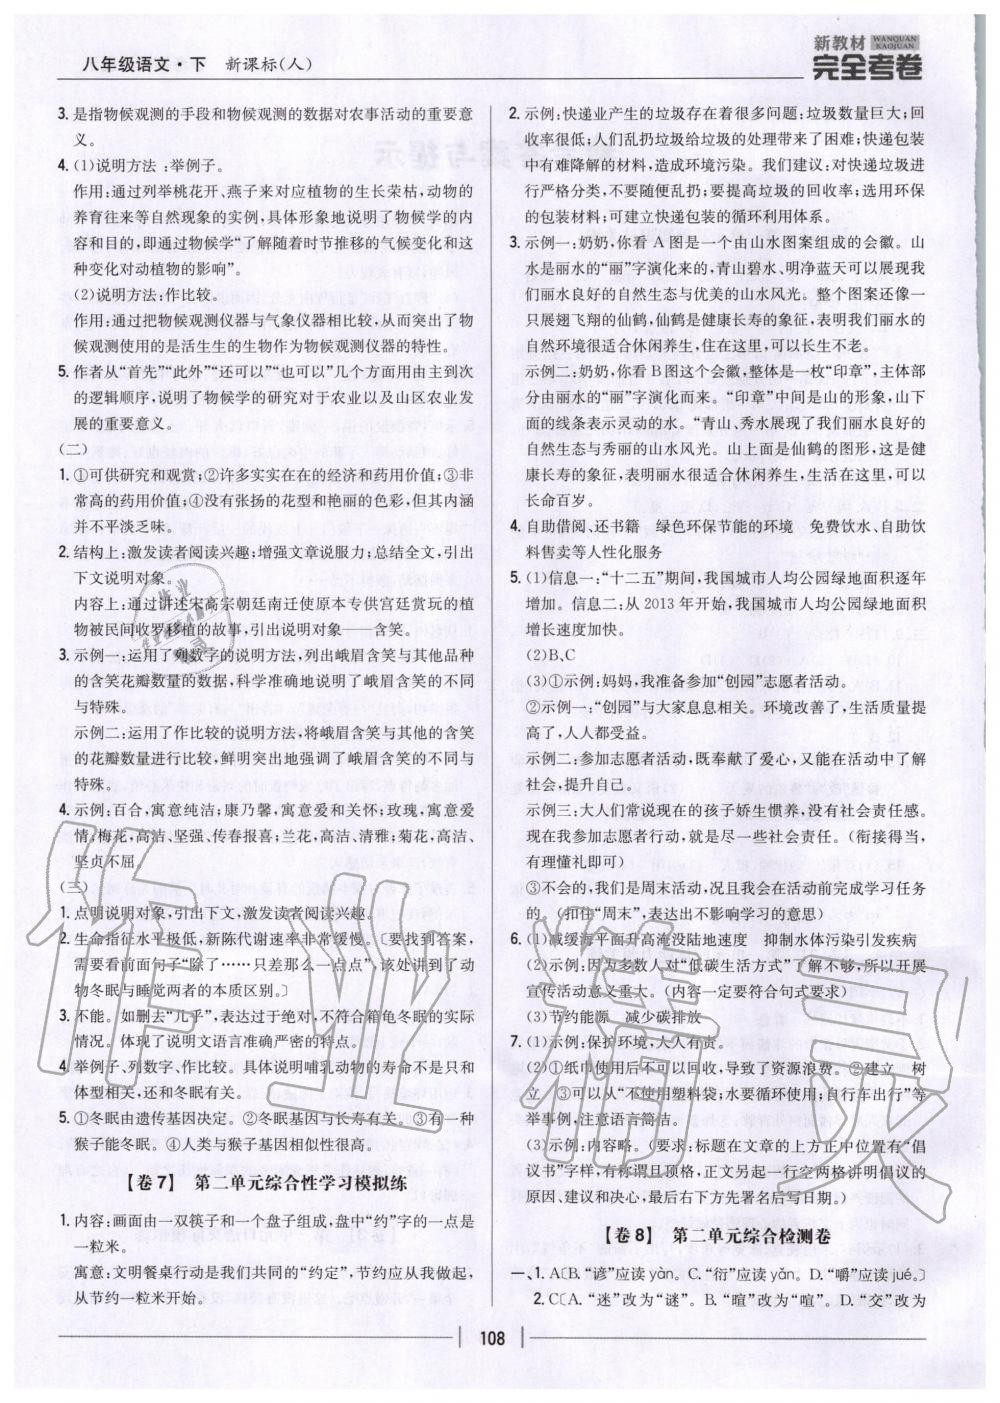 八年级语文·下 新课标(人)
新教材 WANQUAN KAOJUAN
完全考卷
3. 是指物候观测的手段和物候观测的数据对农事活动的重要意
义。
4. (1)说明方法:举例子。
作用:通过列举桃花开、燕子来对应植物的生长荣枯,动物的
养育往来等自然现象的实例,具体形象地说明了物候学的内
容和目的,即通过物候学“了解随着时节推移的气候变化和这
种变化对动植物的影响”。
(2)说明方法:作比较。
作用:通过把物候观测仪器与气象仪器相比较,从而突出了物
候观测使用的是活生生的生物作为物候观测仪器的特性。
5. 作者从“首先”“此外”“还可以”“也可以”几个方面用由主到次
的逻辑顺序,说明了物候学的研究对于农业以及山区农业发
展的重要意义。
(二)
1. ①可供研究和观赏;②许多实实在在的经济和药用价值;③非
常高的药用价值;④没有张扬的花型和艳丽的色彩,但其内涵
并不平淡乏味。
2. 结构上:激发读者阅读兴趣;增强文章说服力;总结全文,引出
下文说明对象。
内容上:通过讲述宋高宗朝廷南迁使原本专供宫廷赏玩的植
物被民间收罗移植的故事,引出说明对象——含笑。
3. 示例一:运用了列数字的说明方法,列出峨眉含笑与其他品种
的含笑花瓣数量的数据,科学准确地说明了峨眉含笑的不同
与特殊。
示例二:运用了作比较的说明方法,将峨眉含笑与其他的含笑
的花瓣数量进行比较,鲜明突出地强调了峨眉含笑的不同与
特殊。
4. 示例:百合,寓意纯洁;康乃馨,寓意爱和关怀;玫瑰,寓意爱
情;梅花,高洁、坚强、传春报喜;兰花,高洁、清雅;菊花,高洁、
坚贞不屈。
(三)
1. 点明说明对象,引出下文,激发读者阅读兴趣。
2. 生命指征水平极低,新陈代谢速率非常缓慢。〔要找到答案,
需要看前面句子“除了……只差那么一点点”,该处讲到了动
物冬眠与睡觉两者的本质区别。〕
3. 不能。如删去“几乎”,表达过于绝对,不符合箱龟冬眠的实际
情况。体现了说明文语言准确严密的特点。
4. 举例子、列数字、作比较。具体说明哺乳动物的寿命不是只和
体型相关,还和冬眠有关。
5. ①冬眠由遗传基因决定。②冬眠基因与长寿有关。③有一种
猴子能冬眠。④人类与猴子基因相似性很高。
【卷7】 第二单元综合性学习模拟练
1. 内容:画面由一双筷子和一个盘子组成,盘中“约”字的一点是
一粒米。
寓意:文明餐桌行动是我们共同的“约定”,节约应从我做起,
从节约一粒米开始。
2. 示例:快递业产生的垃圾存在着很多问题:垃圾数量巨大;回
收率很低;人们乱扔垃圾给垃圾的处理带来了困难;快递包装
中有难降解的材料,造成环境污染。我们建议:对快递垃圾进
行严格分类,不要随便乱扔;要提高垃圾的回收率;选用环保
的包装材料;可建立快递包装的循环利用体系。
3. 示例一:奶奶,你看 A 图是一个由山水图案组成的会徽。山
水是丽水的“丽”字演化来的,青山碧水、明净蓝天可以展现我
们丽水良好的自然生态与优美的山水风光。整个图案还像一
只展翅飞翔的仙鹤,仙鹤是健康长寿的象征,表明我们丽水的
自然环境很适合休闲养生,住在这里,可以长生不老。
示例二:奶奶,你看 B 图这个会徽,整体是一枚“印章”,主体部
分由丽水的“丽”字演化而来。“印章”中间是山的形象,山下
面的线条表示灵动的水。“青山、秀水展现了我们丽水良好的
自然生态与秀丽的山水风光。山上面是仙鹤的图形,这是健
康长寿的象征,表明丽水很适合休闲养生,生活在这里,可以
长命百岁。
4. 自助借阅、还书籍 绿色环保节能的环境 免费饮水、自助饮
料售卖等人性化服务
5. (1)信息一:“十二五”期间,我国城市人均公园绿地面积逐年
增加。信息二:从 2013 年开始,我国城市人均公园绿地面积
增长速度加快。
(2)B、C
(3)①示例:妈妈,我准备参加“创园”志愿者活动。
②示例一:“创园”与大家息息相关。环境改善了,生活质量提
高了,人人都受益。
示例二:参加志愿者活动,既奉献了爱心,又能在活动中了解
社会,提升自己。
示例三:大人们常说现在的孩子娇生惯养,没有社会责任感。
现在我参加志愿者行动,就是尽一些社会责任。(衔接得当,
有理懂礼即可)
③不会的,我们是周末活动,况且我会在活动前完成学习任务
的。(扣住“周末”,表达出不影响学习的意思)
6. (1)减缓海平面升高淹没陆地速度 抑制水体污染引发疾病
(2)示例:因为多数人对“低碳生活方式”了解不够,所以开展
宣传活动意义重大。(内容一定要符合句式要求)
(3)节约能源 减少碳排放
7. (1)示例:保护环境,人人有责。
(2)①纸巾使用后不可以回收,导致了资源浪费。②建立 树
立 ③可以从“不使用塑料袋;水要循环使用;自行车出行”等
举事例,注意语言简洁。
(3)示例:内容略。(要求:标题在文章的上方正中位置有“倡
议书”字样,有称谓且顶格,正文另起一行空两格讲明倡议的
原因、建议和决心,最后右下方先署名后写日期。)
【卷8】 第二单元综合检测卷
一、1. A〔B. “谚”应读 yàn。C. “衍”应读 yǎn。D. “嚼”应读 jué。〕
2. C〔A. “迷”改为“谜”。B. “喧”改为“暄”。D. “交”改为
108
作业精灵